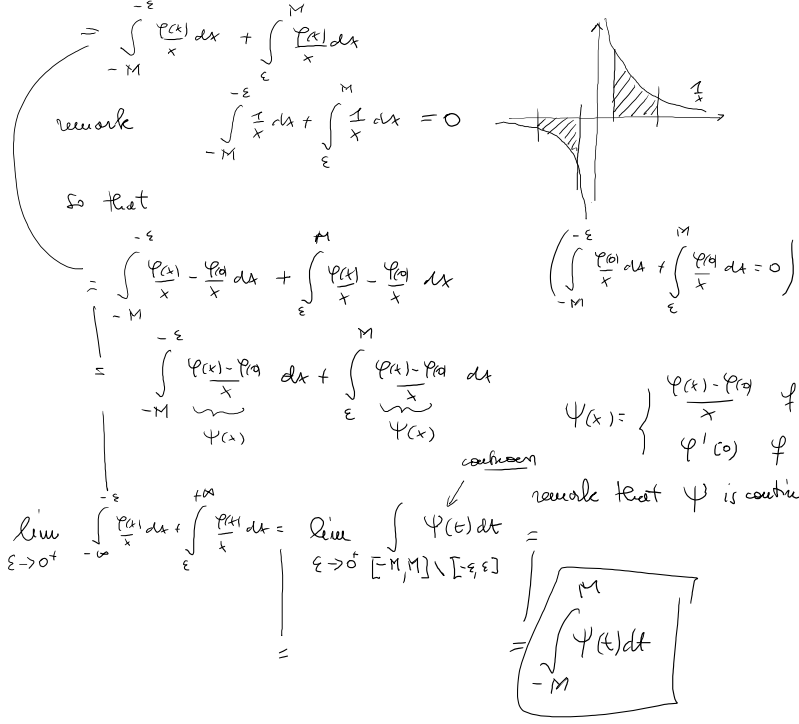 = ∫_{-M}^{-ε} φ(x)/x dx + ∫_{ε}^{M} φ(x)/x dx
1/x
remark ∫_{-M}^{-ε} 1/x dx + ∫_{ε}^{M} 1/x dx = 0
so that
= ∫_{-M}^{-ε} φ(x)/x - φ(0)/x dx + ∫_{ε}^{M} φ(x)/x - φ(0)/x dx
( ∫_{-M}^{-ε} φ(0)/x dx + ∫_{ε}^{M} φ(0)/x dx = 0 )
= ∫_{-M}^{-ε} (φ(x)-φ(0))/x dx + ∫_{ε}^{M} (φ(x)-φ(0))/x dx
ψ(x) ψ(x)
ψ(x) = { (φ(x)-φ(0))/x f
φ'(0) f
remark that ψ is contin
lim_{ε→0⁺} ∫_{-∞}^{-ε} φ(x)/x dx + ∫_{ε}^{+∞} φ(x)/x dx = lim_{ε→0⁺} ∫_{[-M,M]\[-ε,ε]} ψ(t)dt =
= = ∫_{-M}^{M} ψ(t)dt